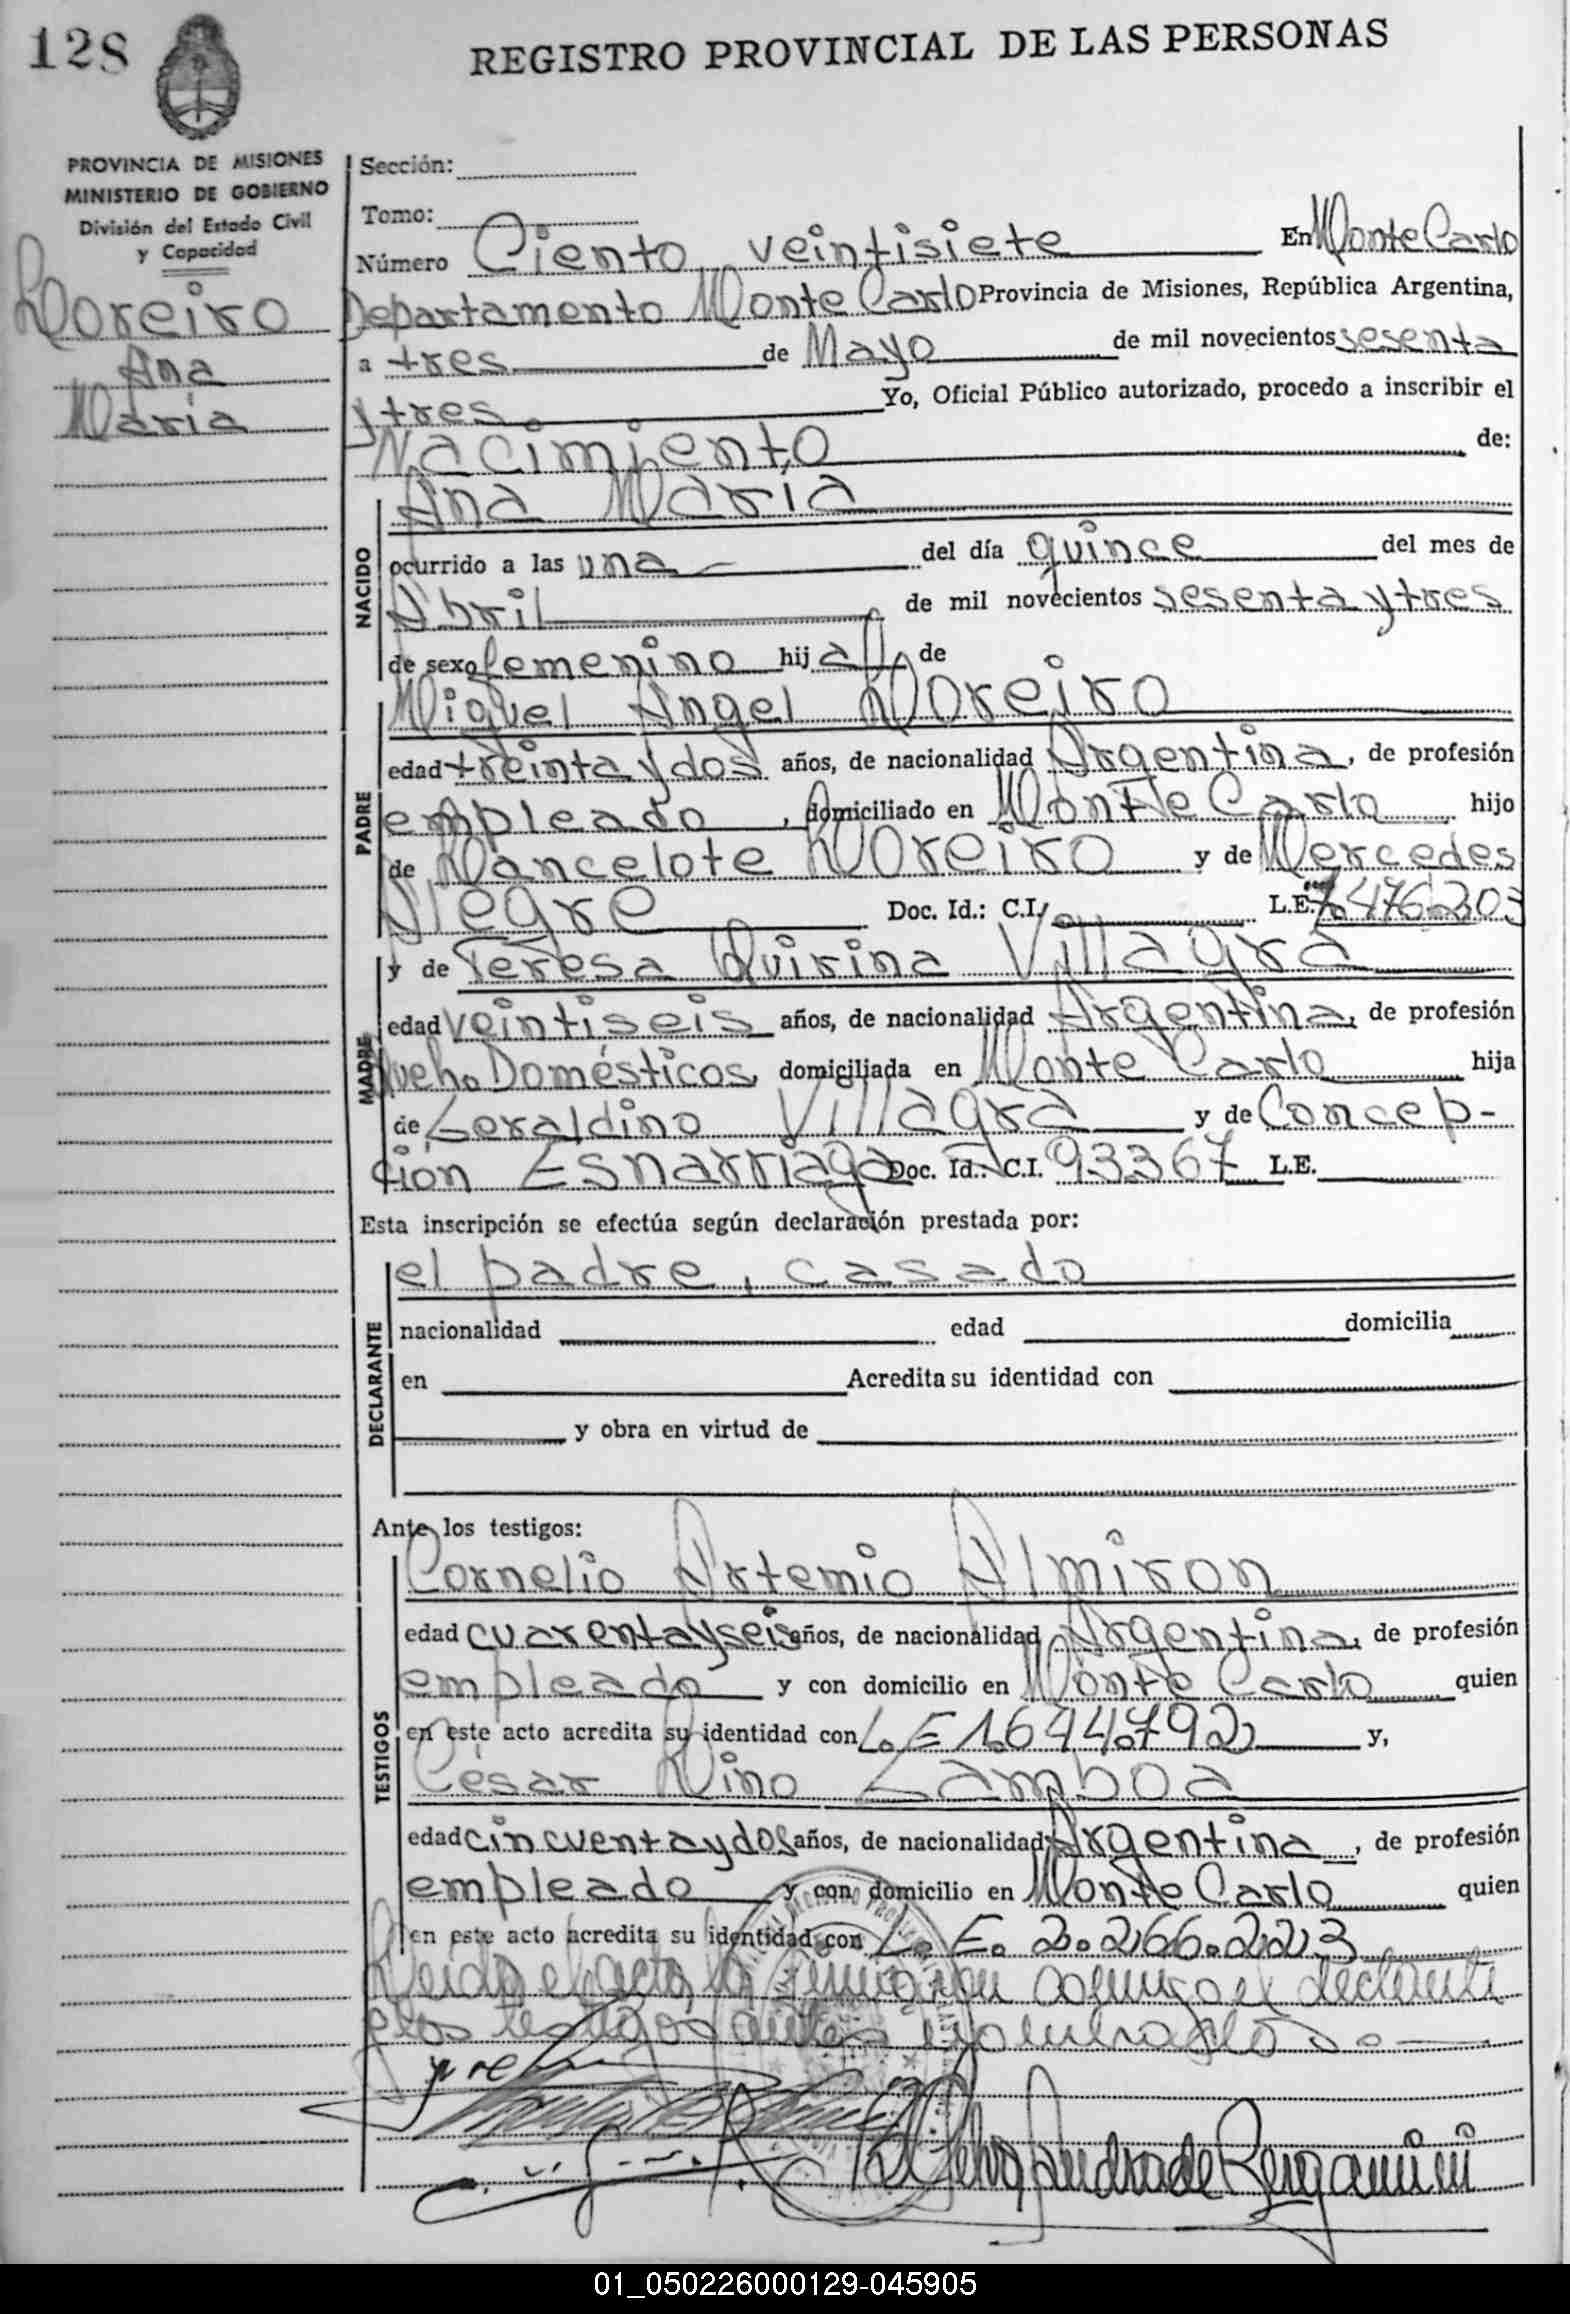 128
REGISTRO PROVINCIAL DE LAS PERSONAS
PROVINCIA DE MISIONES
MINISTERIO DE GOBIERNO
División del Estado Civil
y Capacidad
Loreiro
Ana
María
Sección:
Tomo:
Número Ciento veintisiete En Monte Carlo
Departamento Monte Carlo Provincia de Misiones, República Argentina,
a tres de Mayo de mil novecientos sesenta
y tres Yo, Oficial Público autorizado, procedo a inscribir el
Nacimiento de:
Ana María
NACIDO
ocurrido a las una del día quince del mes de
Abril de mil novecientos sesenta y tres
de sexo femenino hija de
Miguel Angel Loreiro
PADRE
edad treinta y dos años, de nacionalidad Argentina, de profesión
empleado, domiciliado en Monte Carlo hijo
de Lancelote Loreiro y de Mercedes
Negre Doc. Id.: C.I. L.E. 7.476.203
y de Teresa Quirina Villagra
MADRE
edad veintiseis años, de nacionalidad Argentina, de profesión
Queh. Domésticos, domiciliada en Monte Carlo hija
de Geraldino Villagra y de Concep-
ción Esnarriaga Doc. Id.: C.I. 93367 L.E.
Esta inscripción se efectúa según declaración prestada por:
el padre, casado
DECLARANTE
nacionalidad edad domicilia
en Acredita su identidad con
y obra en virtud de
Ante los testigos:
TESTIGOS
Cornelio Artemio Almiron
edad cuarenta y seis años, de nacionalidad Argentina, de profesión
empleado y con domicilio en Monte Carlo quien
en este acto acredita su identidad con L.E 1.644.792 y,
César Lino Gamboa
edad cincuenta y dos años, de nacionalidad Argentina, de profesión
empleado y con domicilio en Monte Carlo quien
en este acto acredita su identidad con L. E. 2.266.223
Leido el acta, la firmaron conmigo el declarante
y los testigos antes nombrados.
Selva Andrade Bergamini
01_050226000129-045905